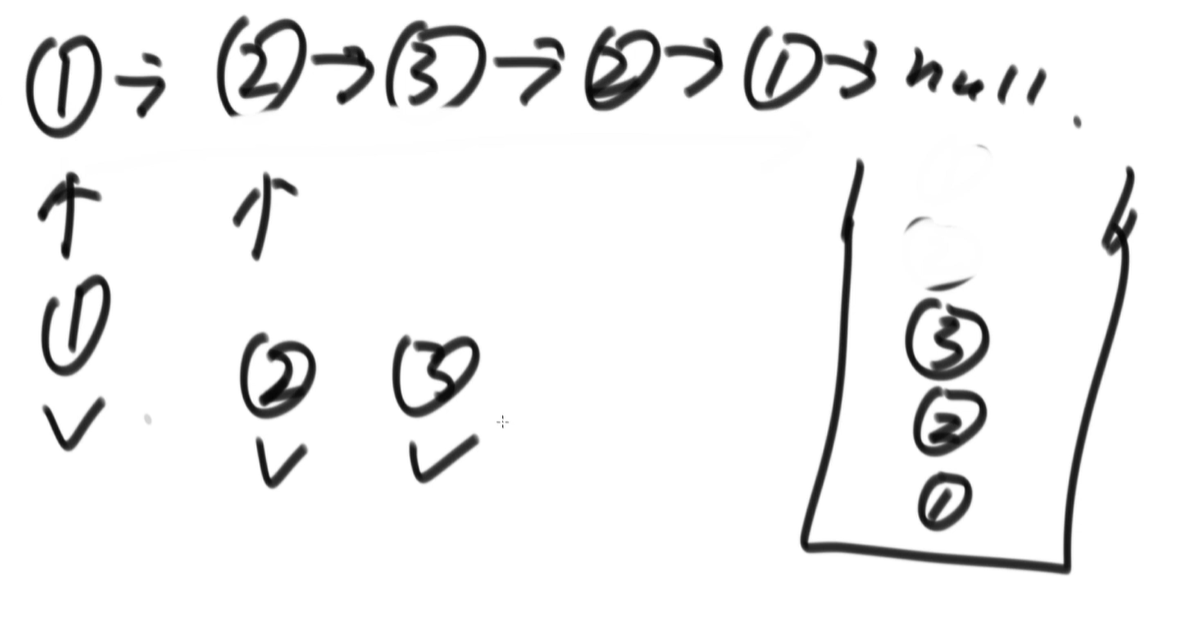 ① → ② → ③ → ② → ① → null.
↑ ↑
①
② ③ ③
✓ ②
✓ ✓ ①